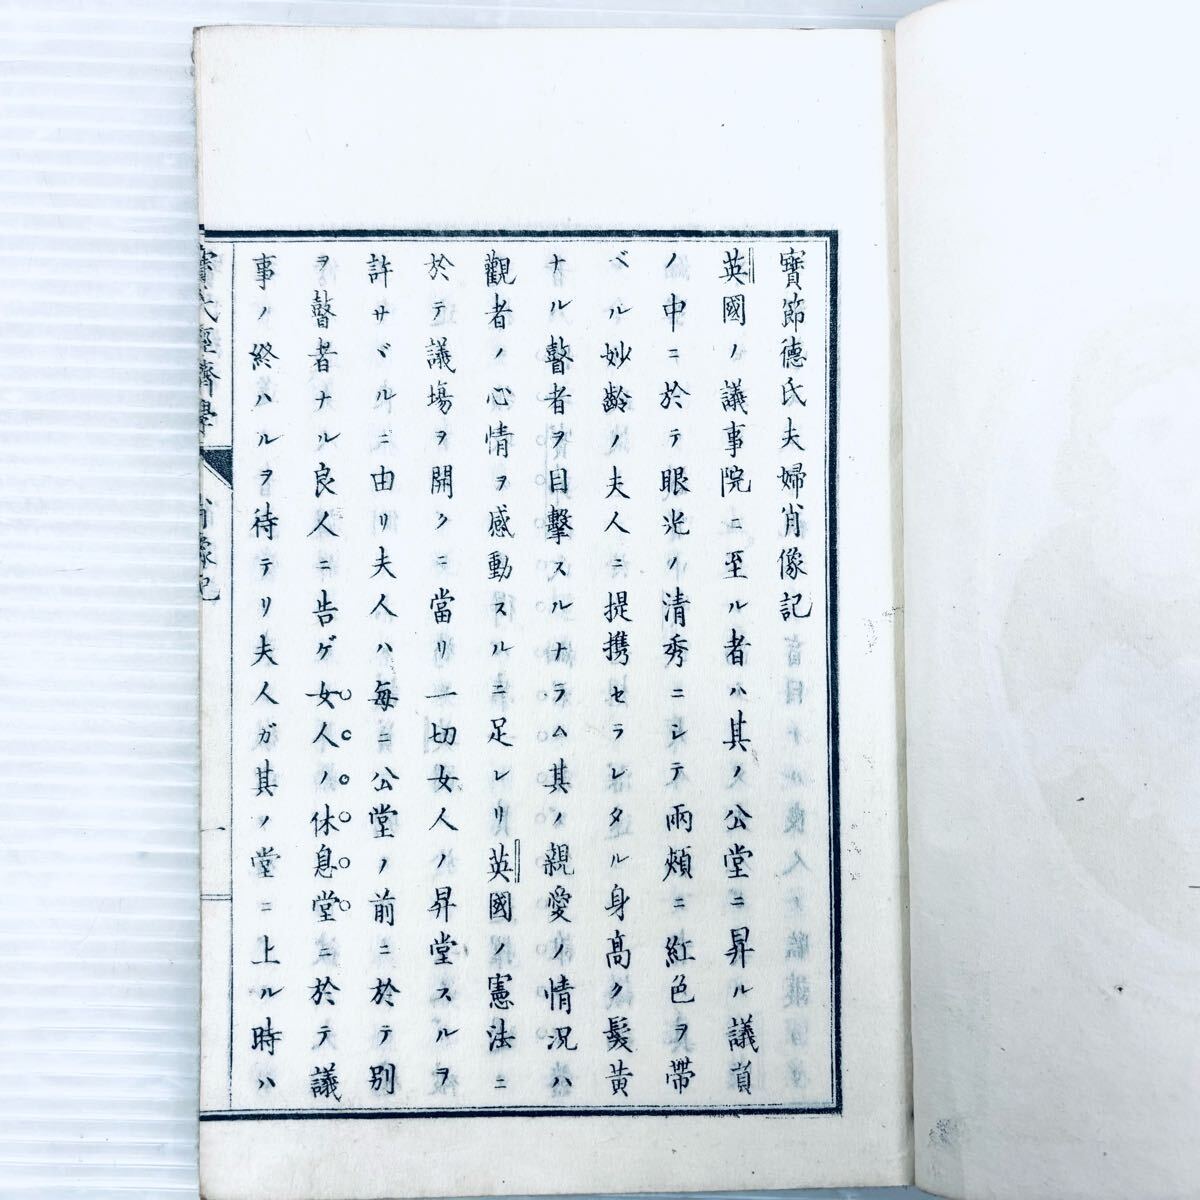 寶節德氏夫婦肖像記
英國ノ議事院ニ至ル者ハ其ノ公堂ニ昇ル議員
ノ中ニ於テ眼光ノ清秀ニシテ兩頰ニ紅色ヲ帶
ベル妙齡ノ夫人ニ提携セラレタル身髙ク髮黃
ナル瞽者ヲ目擊スルナラム其ノ親愛ノ情況ハ
觀者ノ心情ヲ感動スルニ足レリ英國ノ憲法ニ
於テ議塲ヲ開クニ當リ一切女人ノ昇堂スルヲ
許サヾルニ由リ夫人ハ每ニ公堂ノ前ニ於テ別
ヲ瞽者ナル良人ニ告ゲ女人ノ休息堂ニ於テ議
事ノ終ハルヲ待テリ夫人ガ其ノ堂ニ上ル時ハ
寶氏經濟學 肖像記 一